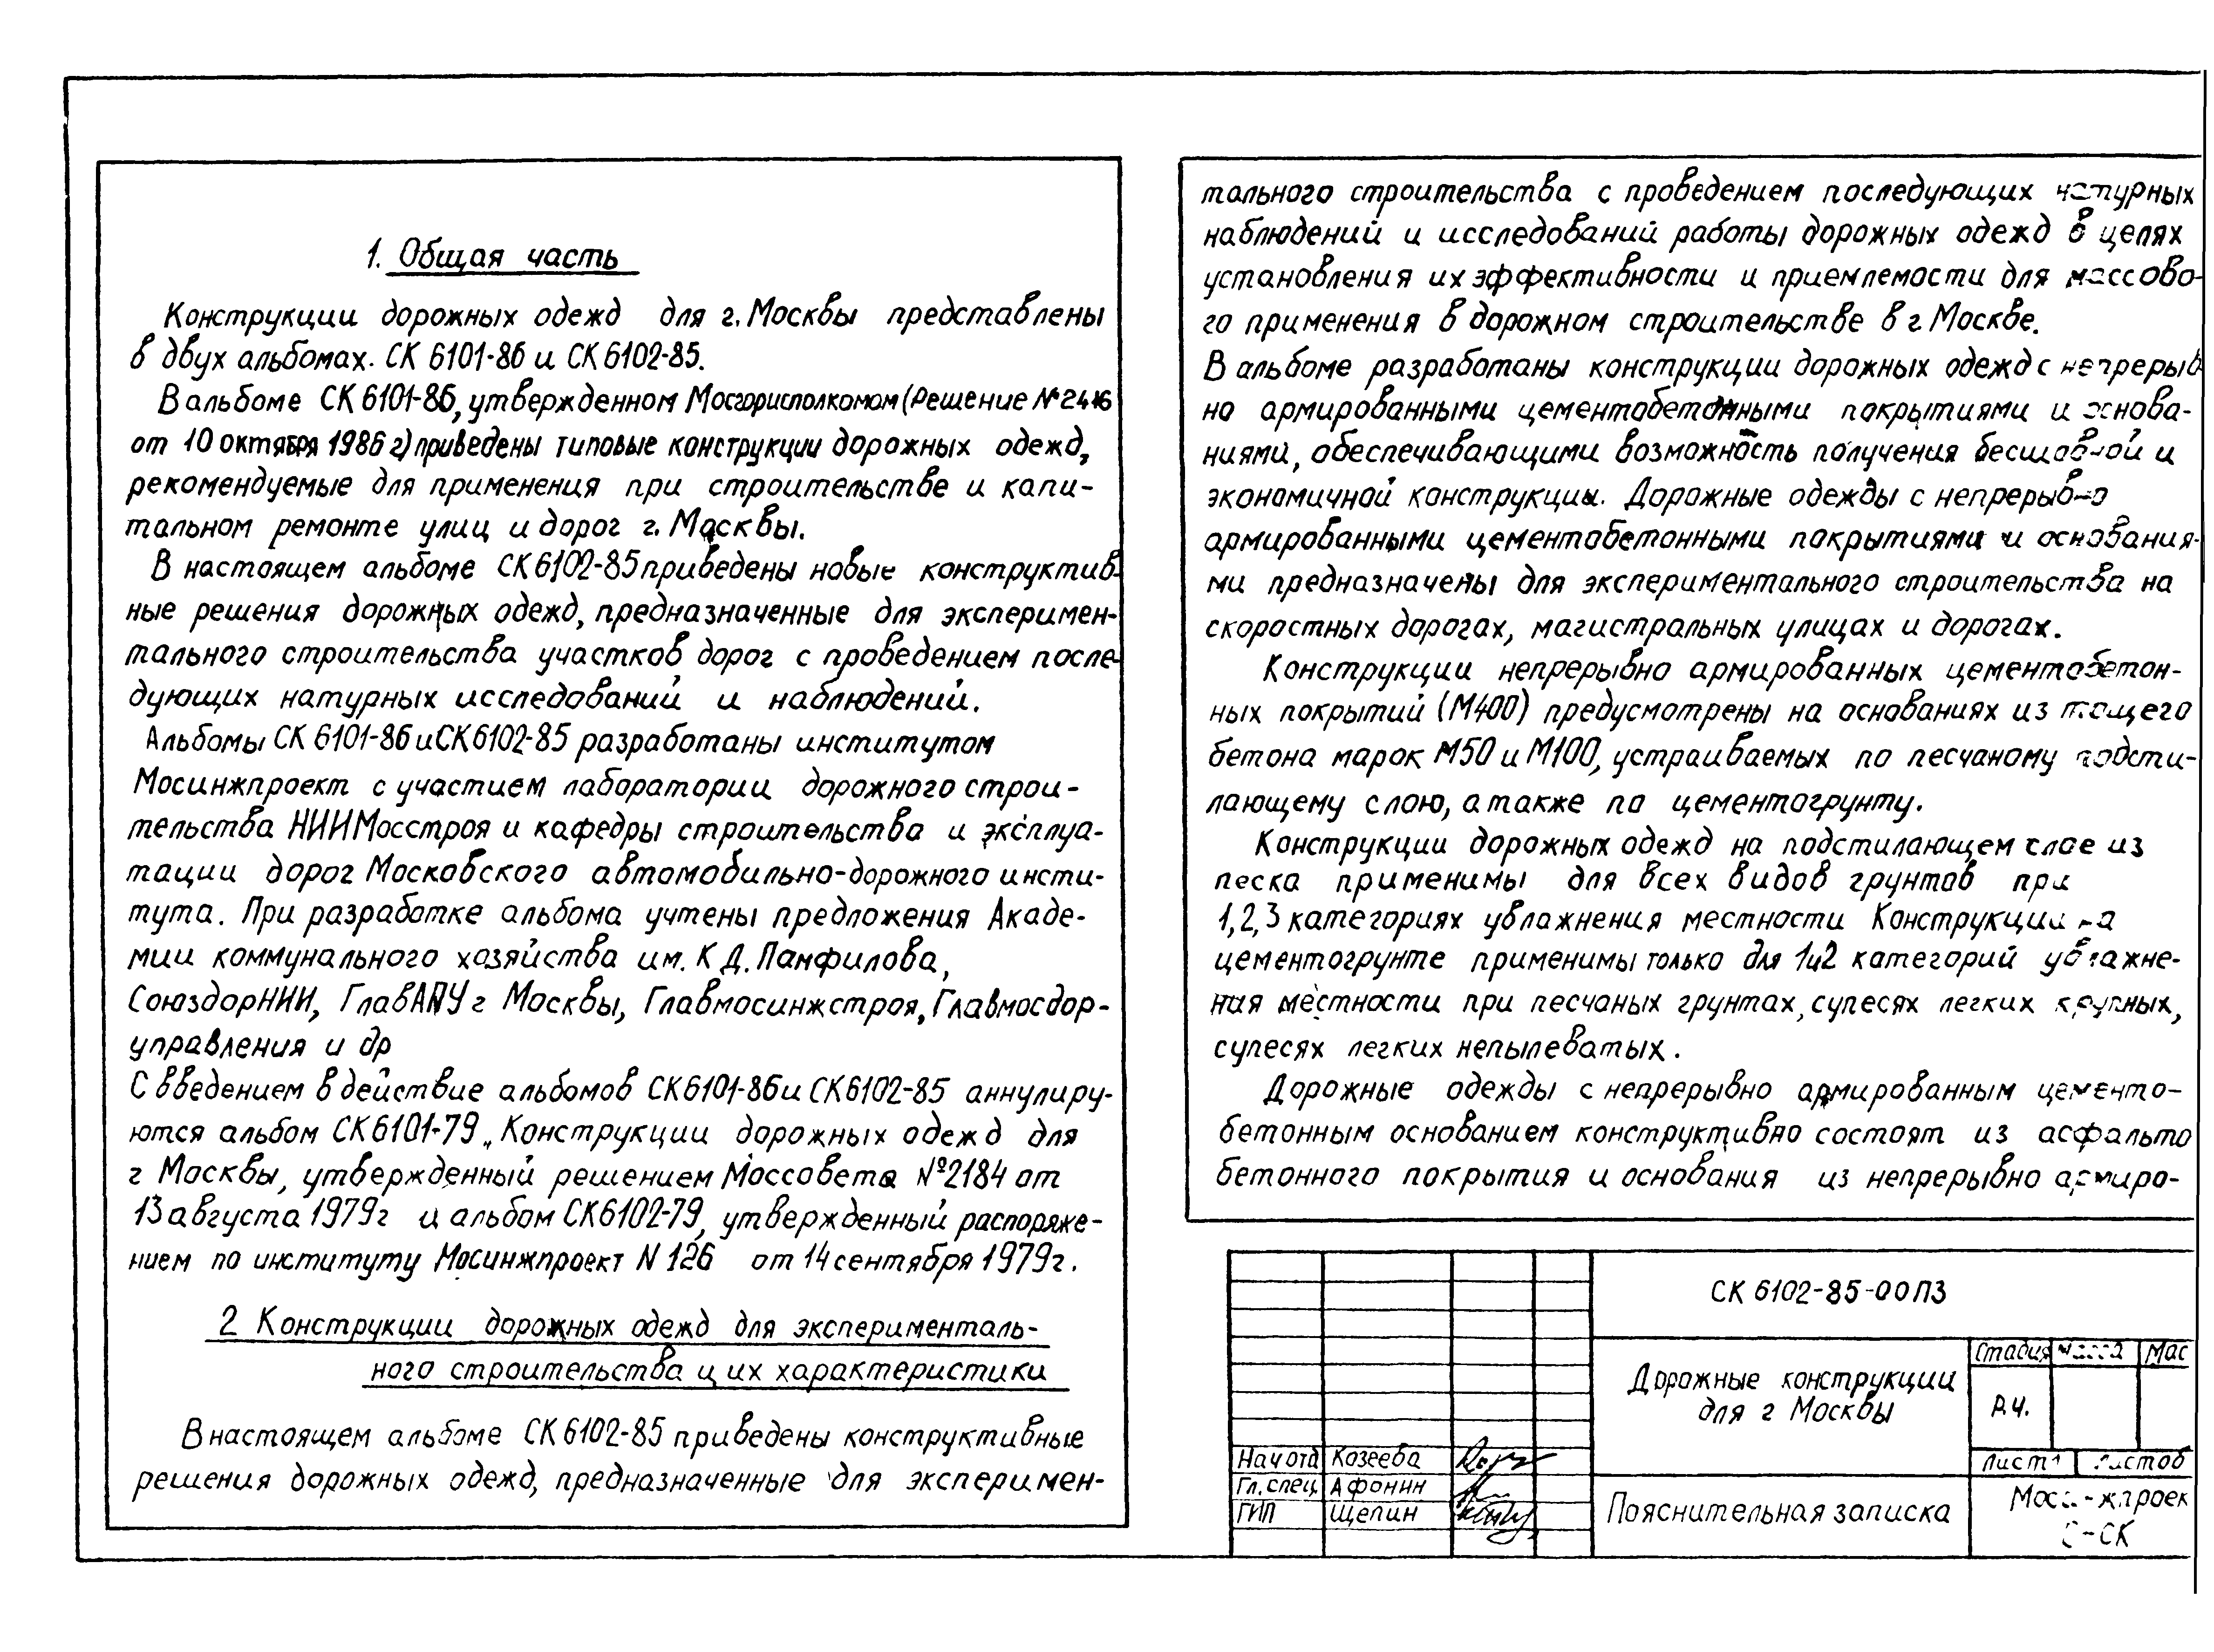 1. Общая часть
Конструкции дорожных одежд для г. Москвы представлены
в двух альбомах. СК 6101-86 и СК 6102-85.
В альбоме СК 6101-86, утвержденном Мосгорисполкомом (Решение № 2416
от 10 октября 1986 г) приведены типовые конструкции дорожных одежд,
рекомендуемые для применения при строительстве и капи-
тальном ремонте улиц и дорог г. Москвы.
В настоящем альбоме СК 6102-85 приведены новые конструктив-
ные решения дорожных одежд, предназначенные для эксперимен-
тального строительства участков дорог с проведением после-
дующих натурных исследований и наблюдений.
Альбомы СК 6101-86 и СК 6102-85 разработаны институтом
Мосинжпроект с участием лаборатории дорожного строи-
тельства НИИМосстроя и кафедры строительства и эксплуа-
тации дорог Московского автомобильно-дорожного инсти-
тута. При разработке альбома учтены предложения Акаде-
мии коммунального хозяйства им. К Д. Памфилова,
СоюздорНИИ, ГлавАПУ г Москвы, Главмосинжстроя, Главмосдор-
управления и др
С введением в действие альбомов СК 6101-86 и СК 6102-85 аннулиру-
ются альбом СК 6101-79 „Конструкции дорожных одежд для
г Москвы, утвержденный решением Моссовета №2184 от
13 августа 1979г и альбом СК 6102-79, утвержденный распоряже-
нием по институту Мосинжпроект N 126 от 14 сентября 1979г.
2 Конструкции дорожных одежд для эксперименталь-
ного строительства и их характеристики
В настоящем альбоме СК 6102-85 приведены конструктивные
решения дорожных одежд, предназначенные для эксперимен-
тального строительства с проведением последующих натурных
наблюдений и исследований работы дорожных одежд в целях
установления их эффективности и приемлемости для массово-
го применения в дорожном строительстве в г Москве.
В альбоме разработаны конструкции дорожных одежд с непрерыв
но армированными цементобетонными покрытиями и основа-
ниями, обеспечивающими возможность получения бесшовной и
экономичной конструкции. Дорожные одежды с непрерывно
армированными цементобетонными покрытиями и основания-
ми предназначены для экспериментального строительства на
скоростных дорогах, магистральных улицах и дорогах.
Конструкции непрерывно армированных цементобетон-
ных покрытий (М400) предусмотрены на основаниях из тощего
бетона марок М50 и М100, устраиваемых по песчаному подсти-
лающему слою, а также по цементогрунту.
Конструкции дорожных одежд на подстилающем слое из
песка применимы для всех видов грунтов при
1,2,3 категориях увлажнения местности Конструкции на
цементогрунте применимы только для 1и2 категорий увлажне-
ния местности при песчаных грунтах, супесях легких крупных,
супесях легких непылеватых.
Дорожные одежды с непрерывно армированным цементо-
бетонным основанием конструктивно состоят из асфальто
бетонного покрытия и основания из непрерывно армиро-
СК 6102-85-00ПЗ
Дорожные конструкции
для г Москвы
Стадия масса Мас
Р.Ч.
Лист 1 Листов
Нач отд Козеева
Гл. спец. Афонин
ГИП Щепин
Пояснительная записка